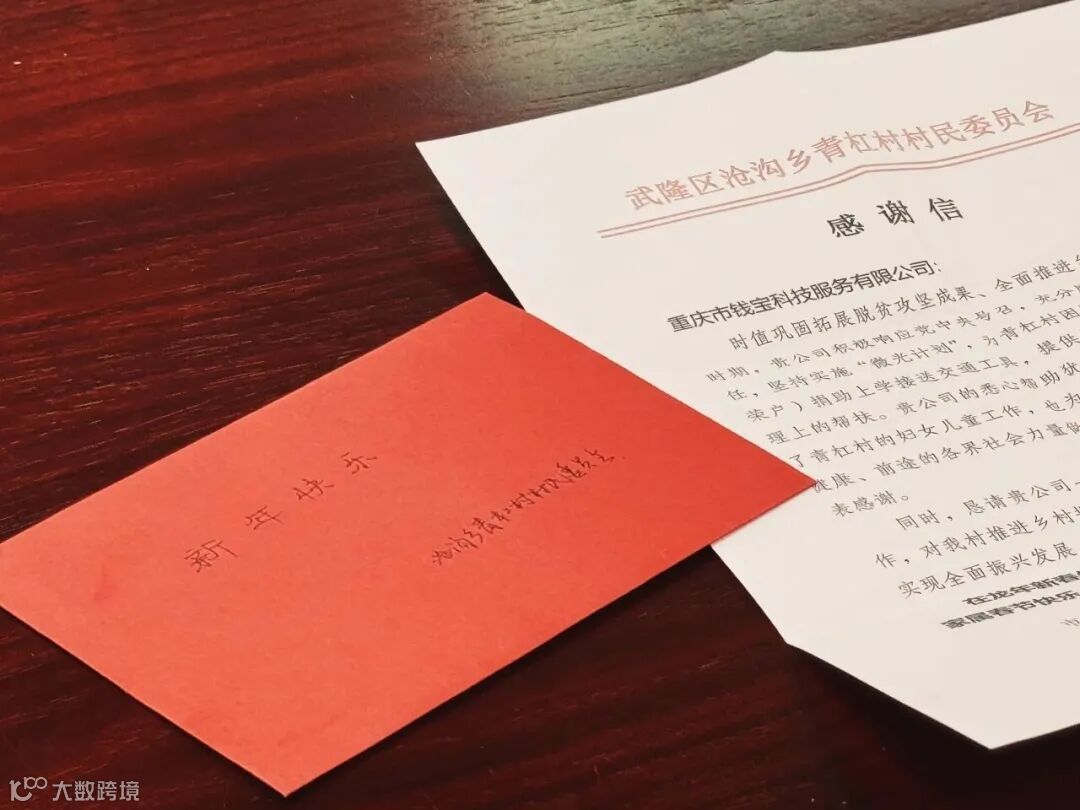 武隆区沧沟乡青杠村村民委员会
感谢信
重庆市钱宝科技服务有限公司：
时值巩固拓展脱贫攻坚成果、全面推进
时期，贵公司积极响应党中央号召，充分
任，坚持实施“微光计划”，为青杠村困
荣户）捐助上学接送交通工具，提供
理上的帮扶。贵公司的悉心帮助犹
了青杠村的妇女儿童工作，也为
健康、前途的各界社会力量做
表感谢。
同时，恳请贵公司一
作，对我村推进乡村振
实现全面振兴发展
在龙年新春
家属春节快乐
新年快乐
沧沟乡青杠村村民委员会
大数跨境